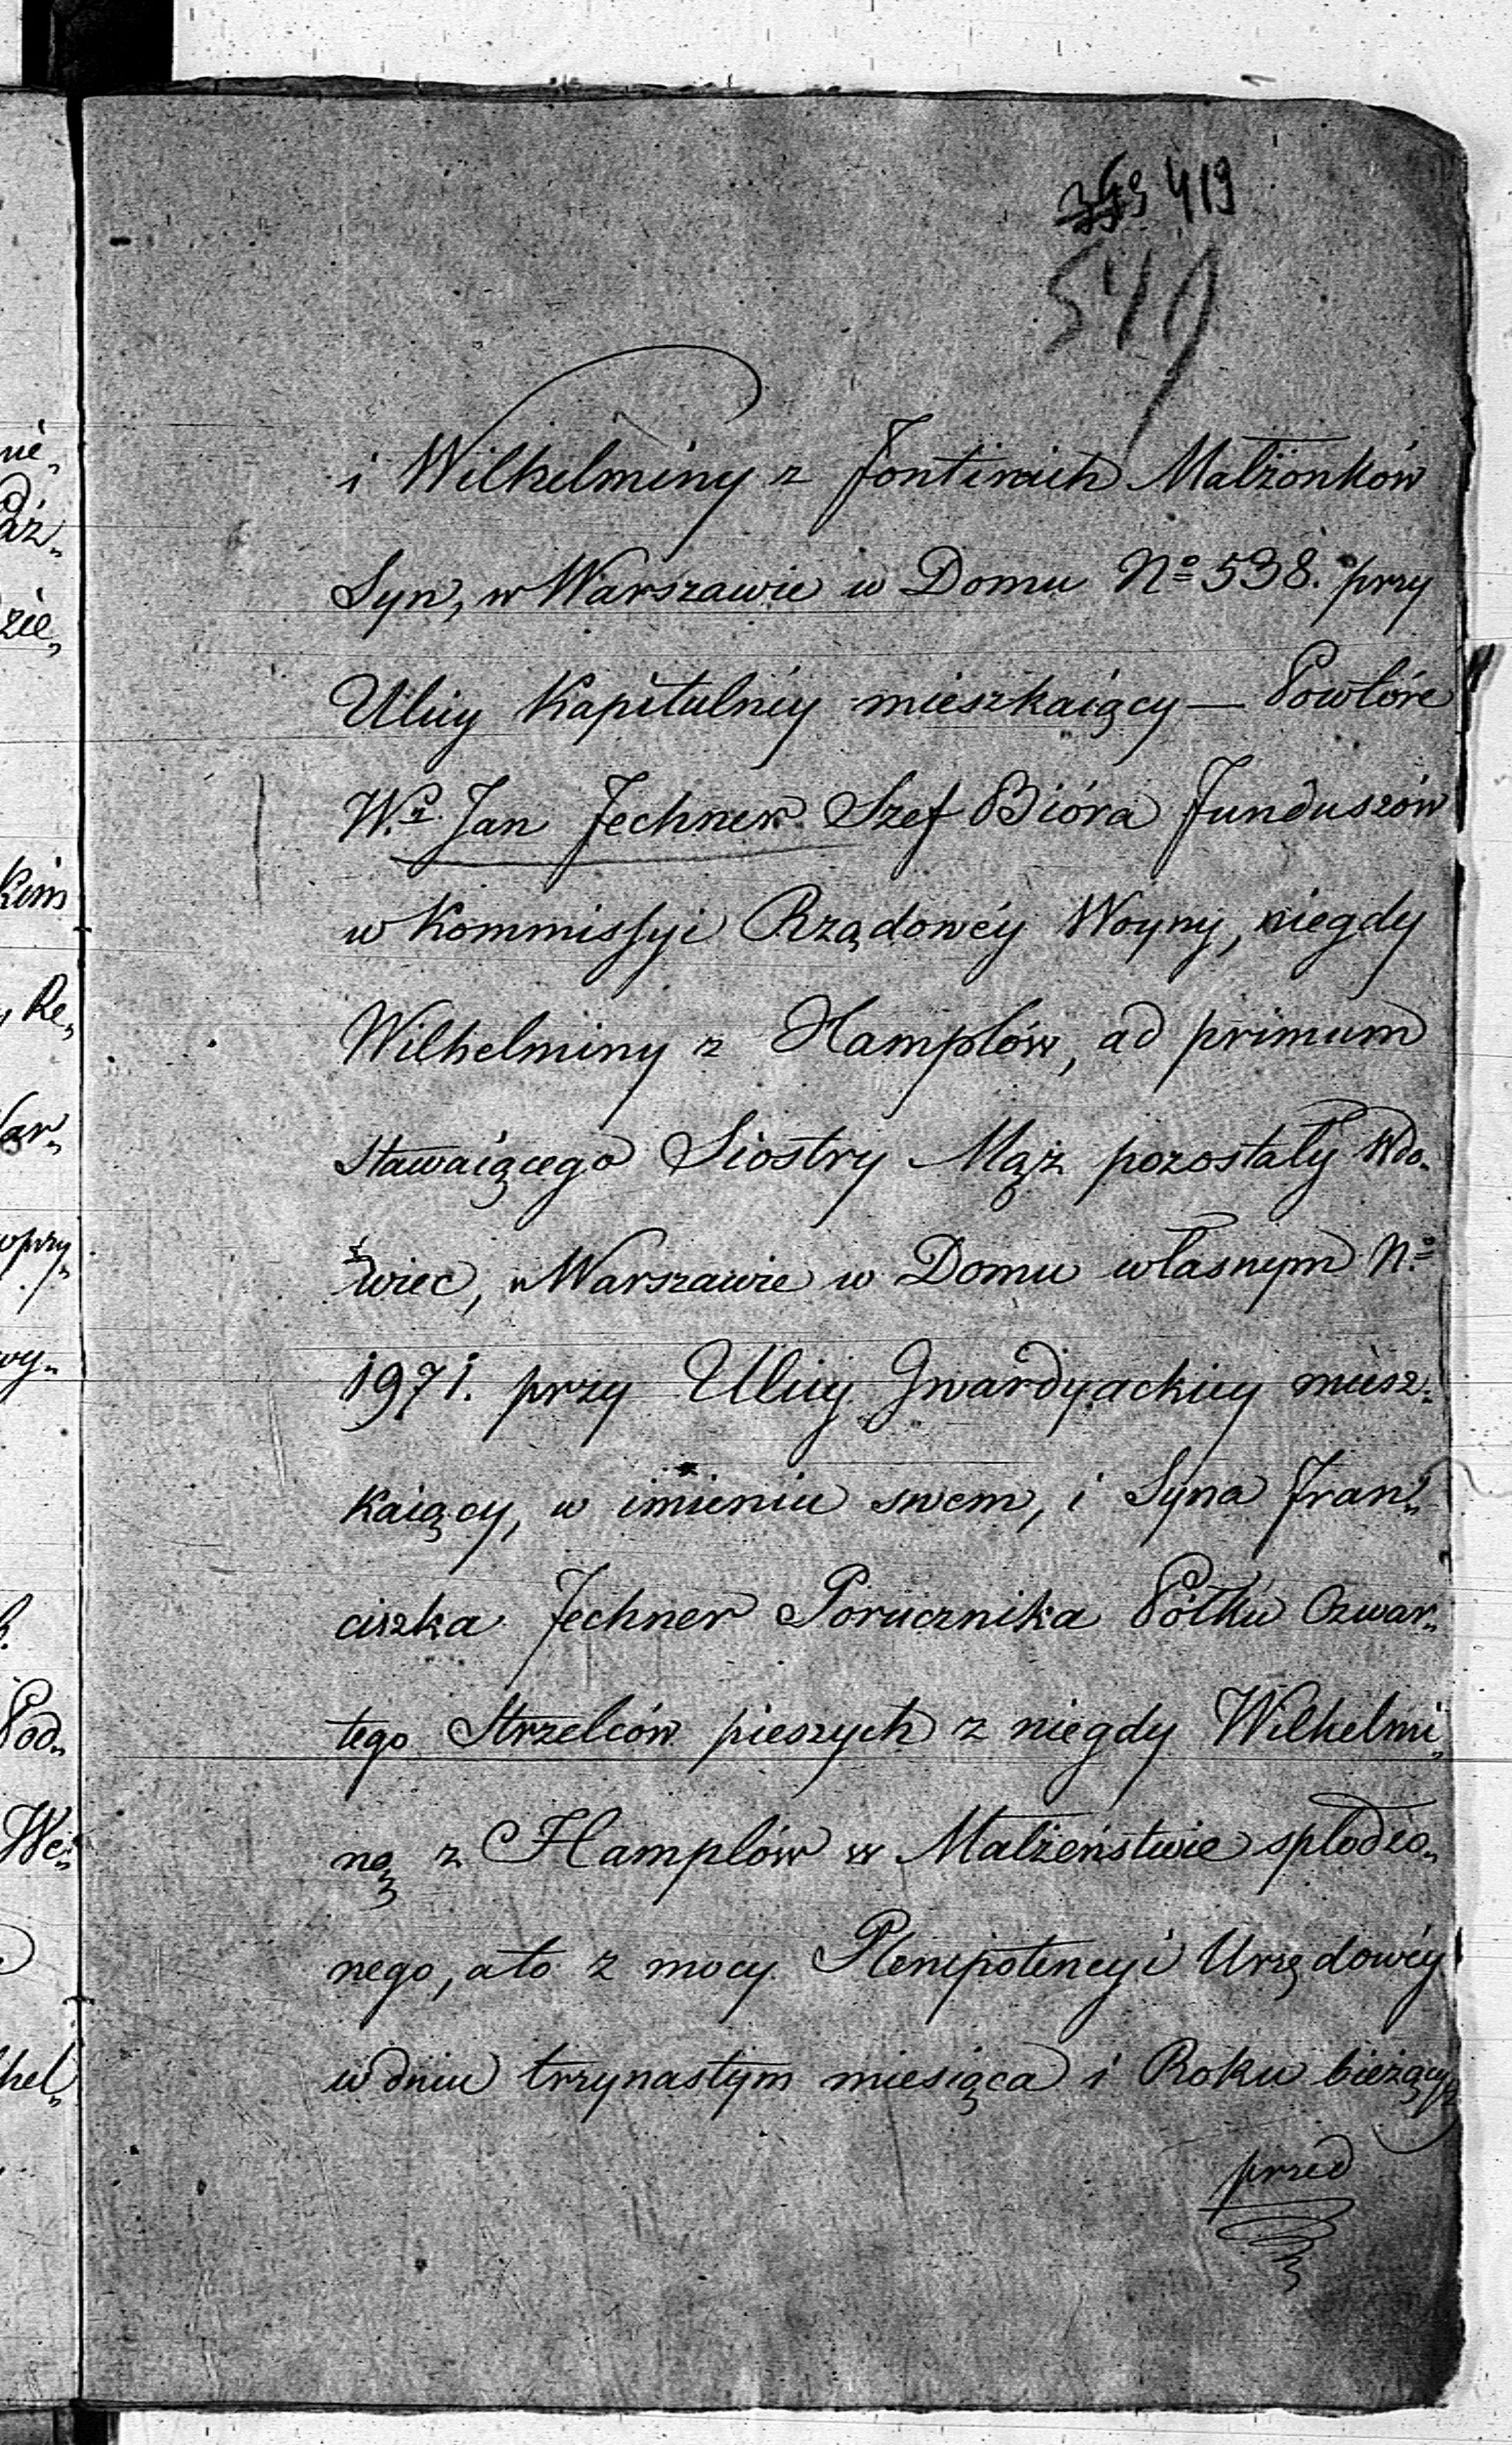 419
549
i Wilhelminy z Fontinich Małżonków
Syn, w Warszawie w Domu Nº 538. przy
Ulicy Kapitulnéy mieszkaiący — Powtóre
Wy. Jan Fechner Szef Bióra Funduszów
w Kommissyi Rządowéy Woyny, niegdy
Wilhelminy z Hamplów, ad primum
stawaiącego Siostry Mąż pozostały Wdo„
wiec, w Warszawie w Domu własnym Nº
1971. przy Ulicy Gwardyackiey miesz„
kaiący, w imieniu swem, i Syna Fran„
ciszka Fechner Porucznika Półku Czwar„
tego Strzelców pieszych z niegdy Wilhelmi„
ną z Hamplów w Małżeństwie spłodzo„
nego, a to z mocy Plenipotencyi Urzędowéy
w dniu trzynastym miesiąca i Roku bieżących
przed
nie„
aż„
zie„
kim
Re„
War„
wprzy„
wy„
Pod„
We„
hel„